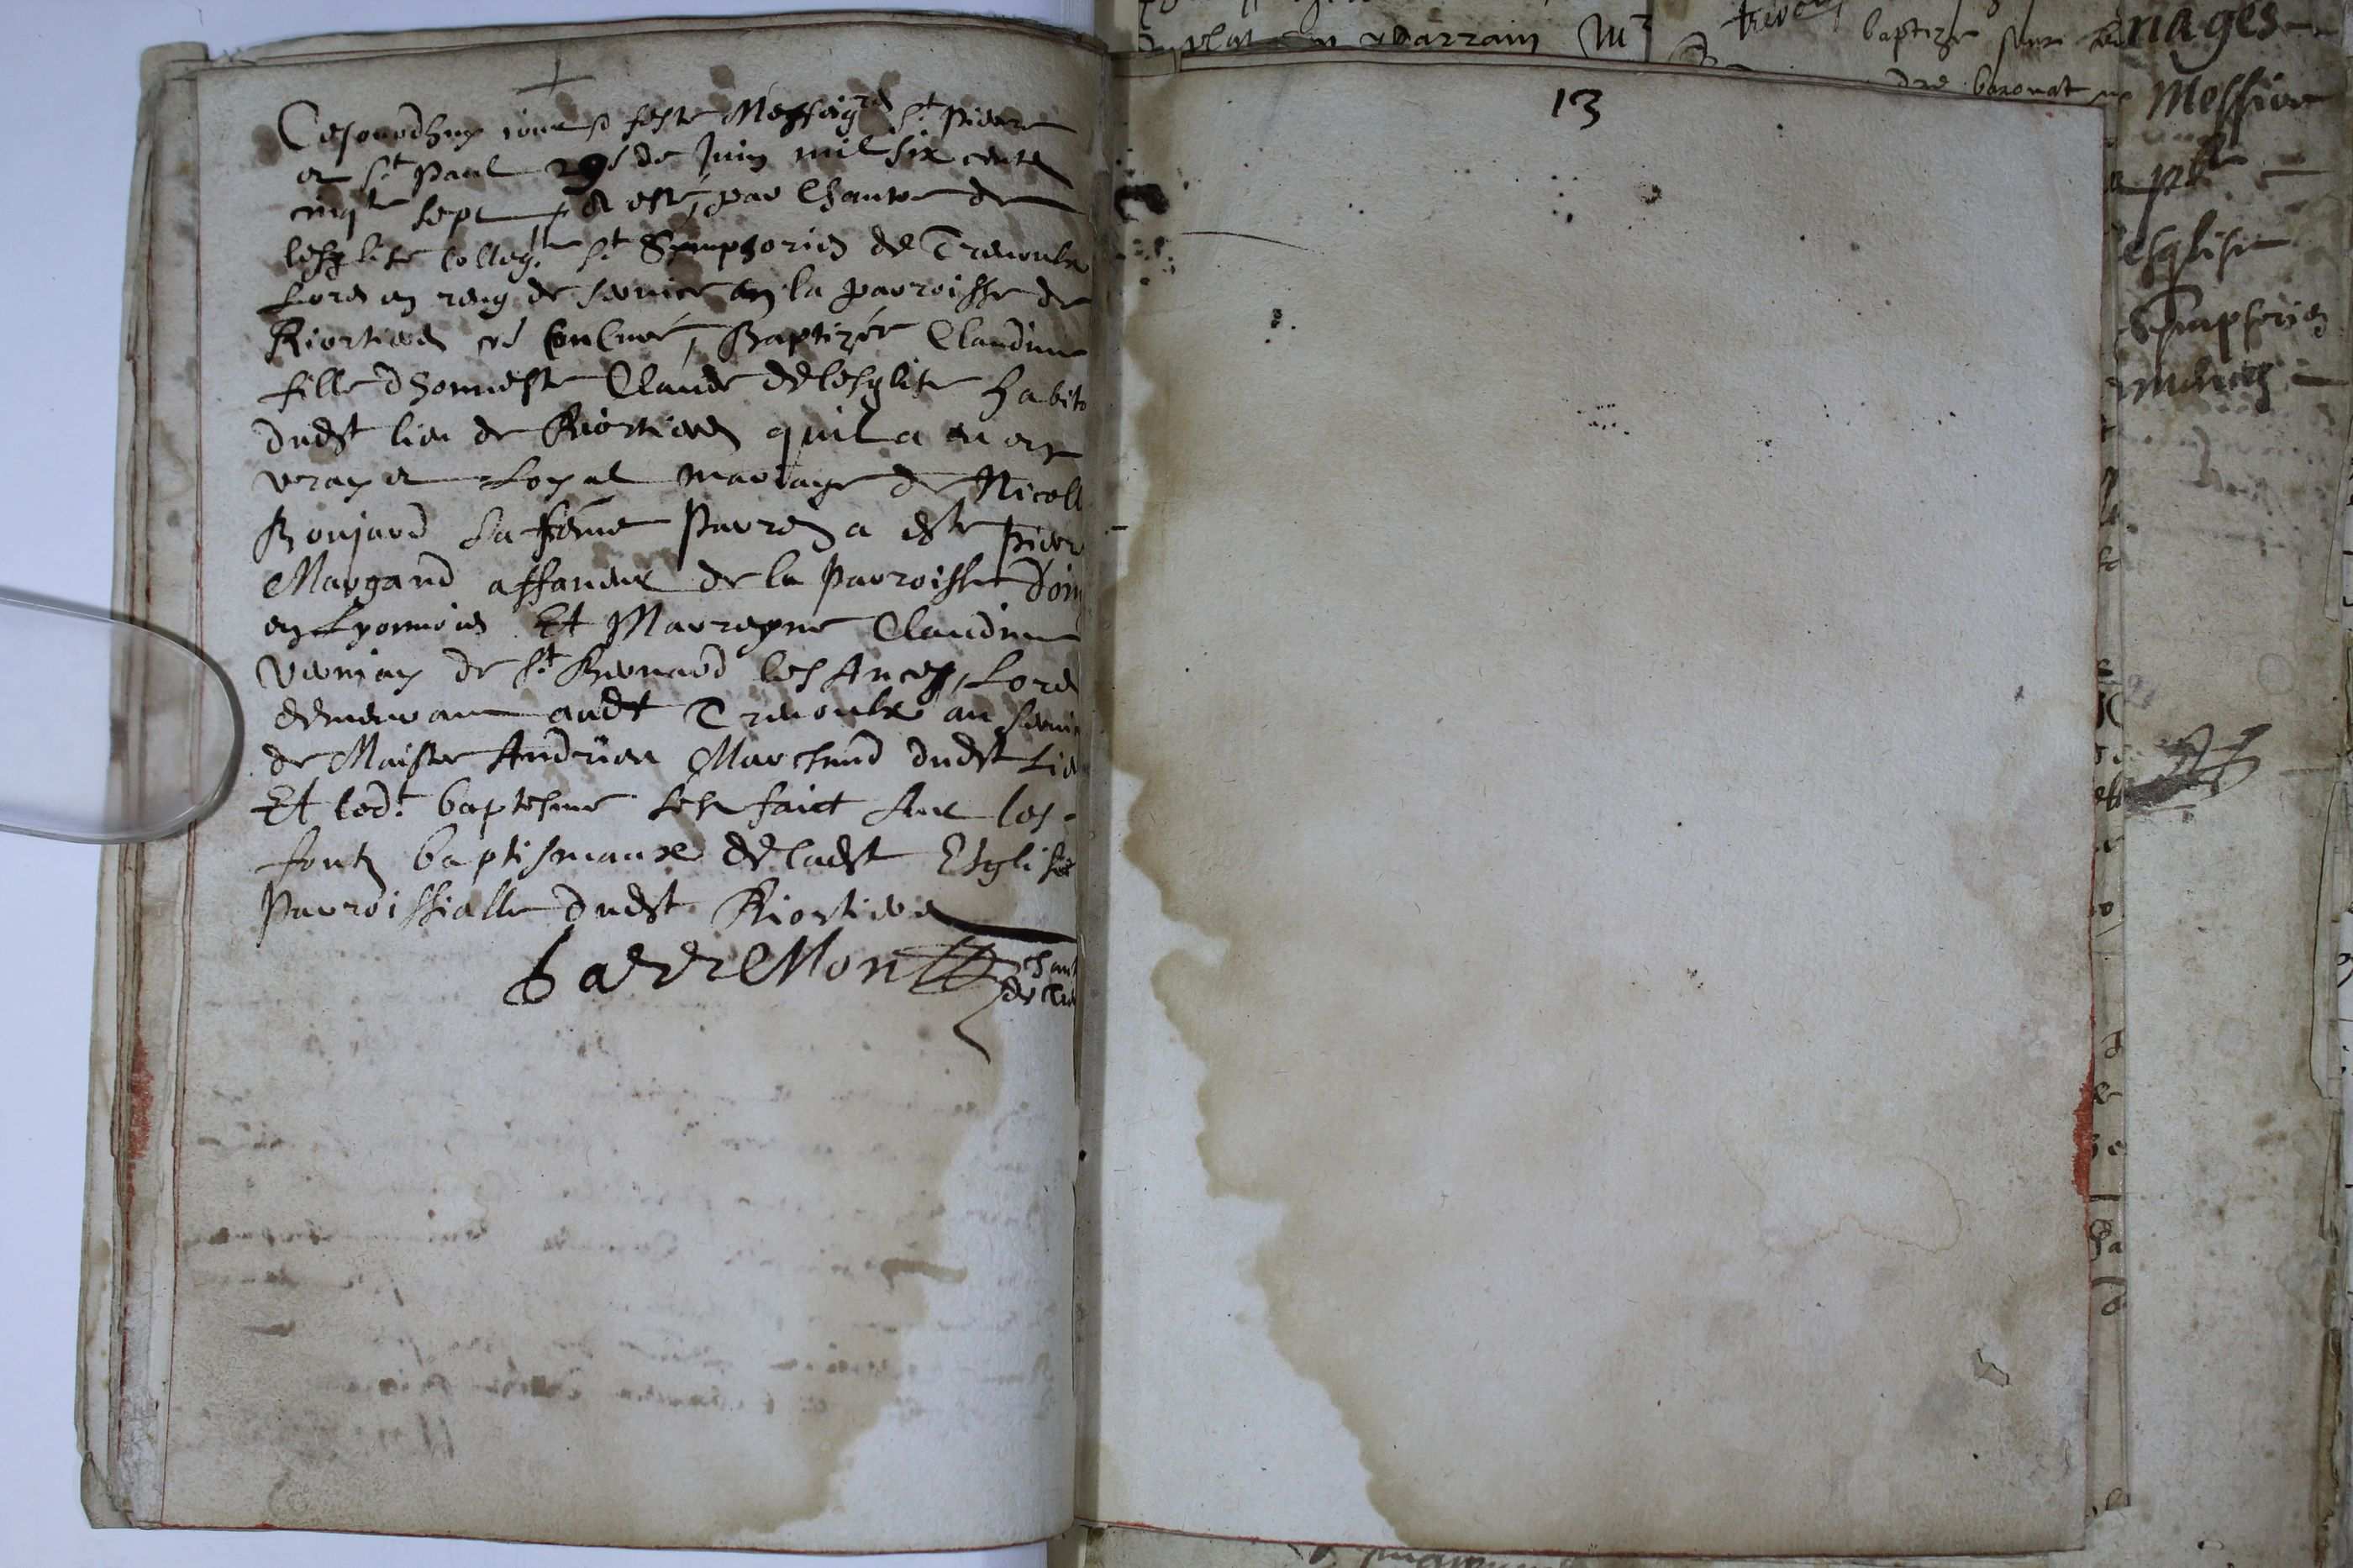 Cejourdhuy jour et feste Messeigrs St Pierre
et St Paul 29e de Juin mil six centz
cinqte sept a esté, par Chantre de
lesglise collegle St Simphorien de Trevoulx
Lors en reng de service en la parroisse de
Riortiers Baptizée Claudine
fille dhonneste Claude delesglise habitt
dudt lieu de Riortiers quil a eu en
vray et Loyal mariage de Nicoll
Bonjard sa féme Parrey a este Pierr
Margand affaneur de la Parroisse
en Lyonnois Et Marreyne Claudine
de St Bernard les Ances, Lors
demeurant audt Trevoulx au servi
de Maistre Andrieu Marchand dudt Lie
Et ledt baptesme sest faict sur les
fontz baptismaux deladt Esglise
Parroissialle dudt Riortiers
Barremon chant
de Tre
13
Mr
baptize
baronat
riages
Messire
ptre
esglise
Simphorien